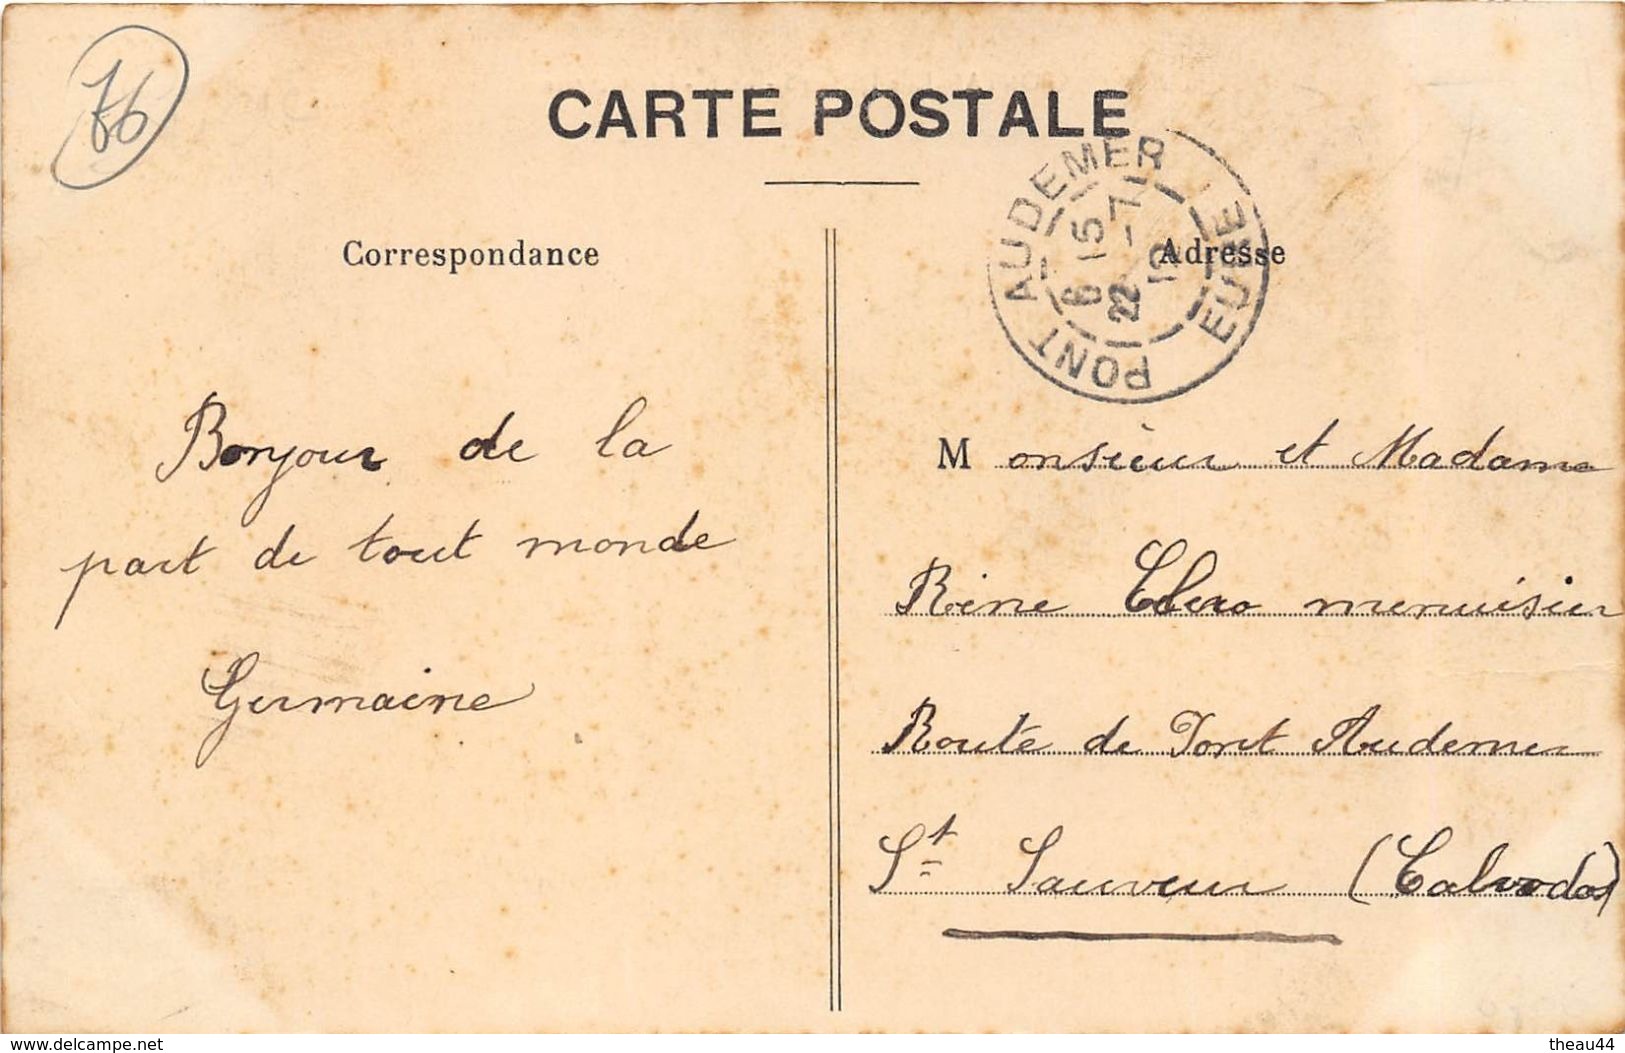 76
CARTE POSTALE
PONT AUDEMER
EURE
6 15
22 -7
12
Correspondance
Adresse
Bonjour de la
part de tout monde
Germaine
Monsieur et Madame
Réne Clero menuisier
Route de Pont Audemer
St Sauveur (Calvados)
www.delcampe.net
theau44